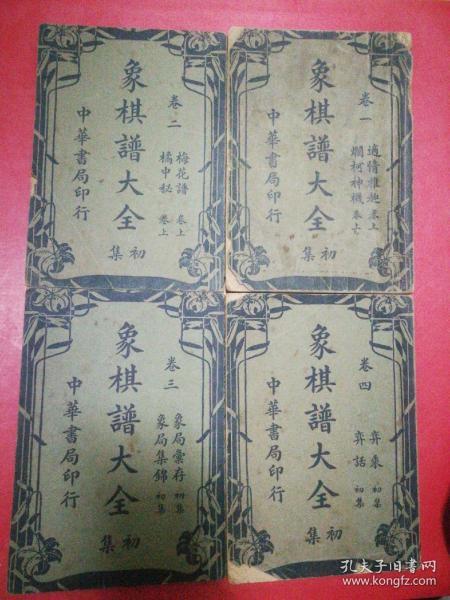 卷一
適情雅趣 卷上
爛柯神機 卷上
象棋譜大全
初集
中華書局印行
卷二
梅花譜 卷上
橘中秘 卷上
象棋譜大全
初集
中華書局印行
卷三
象局彙存 初集
象局集錦 初集
象棋譜大全
初集
中華書局印行
卷四
弈乘 初集
弈話 初集
象棋譜大全
初集
中華書局印行
孔夫子旧书网
www.kongfz.com